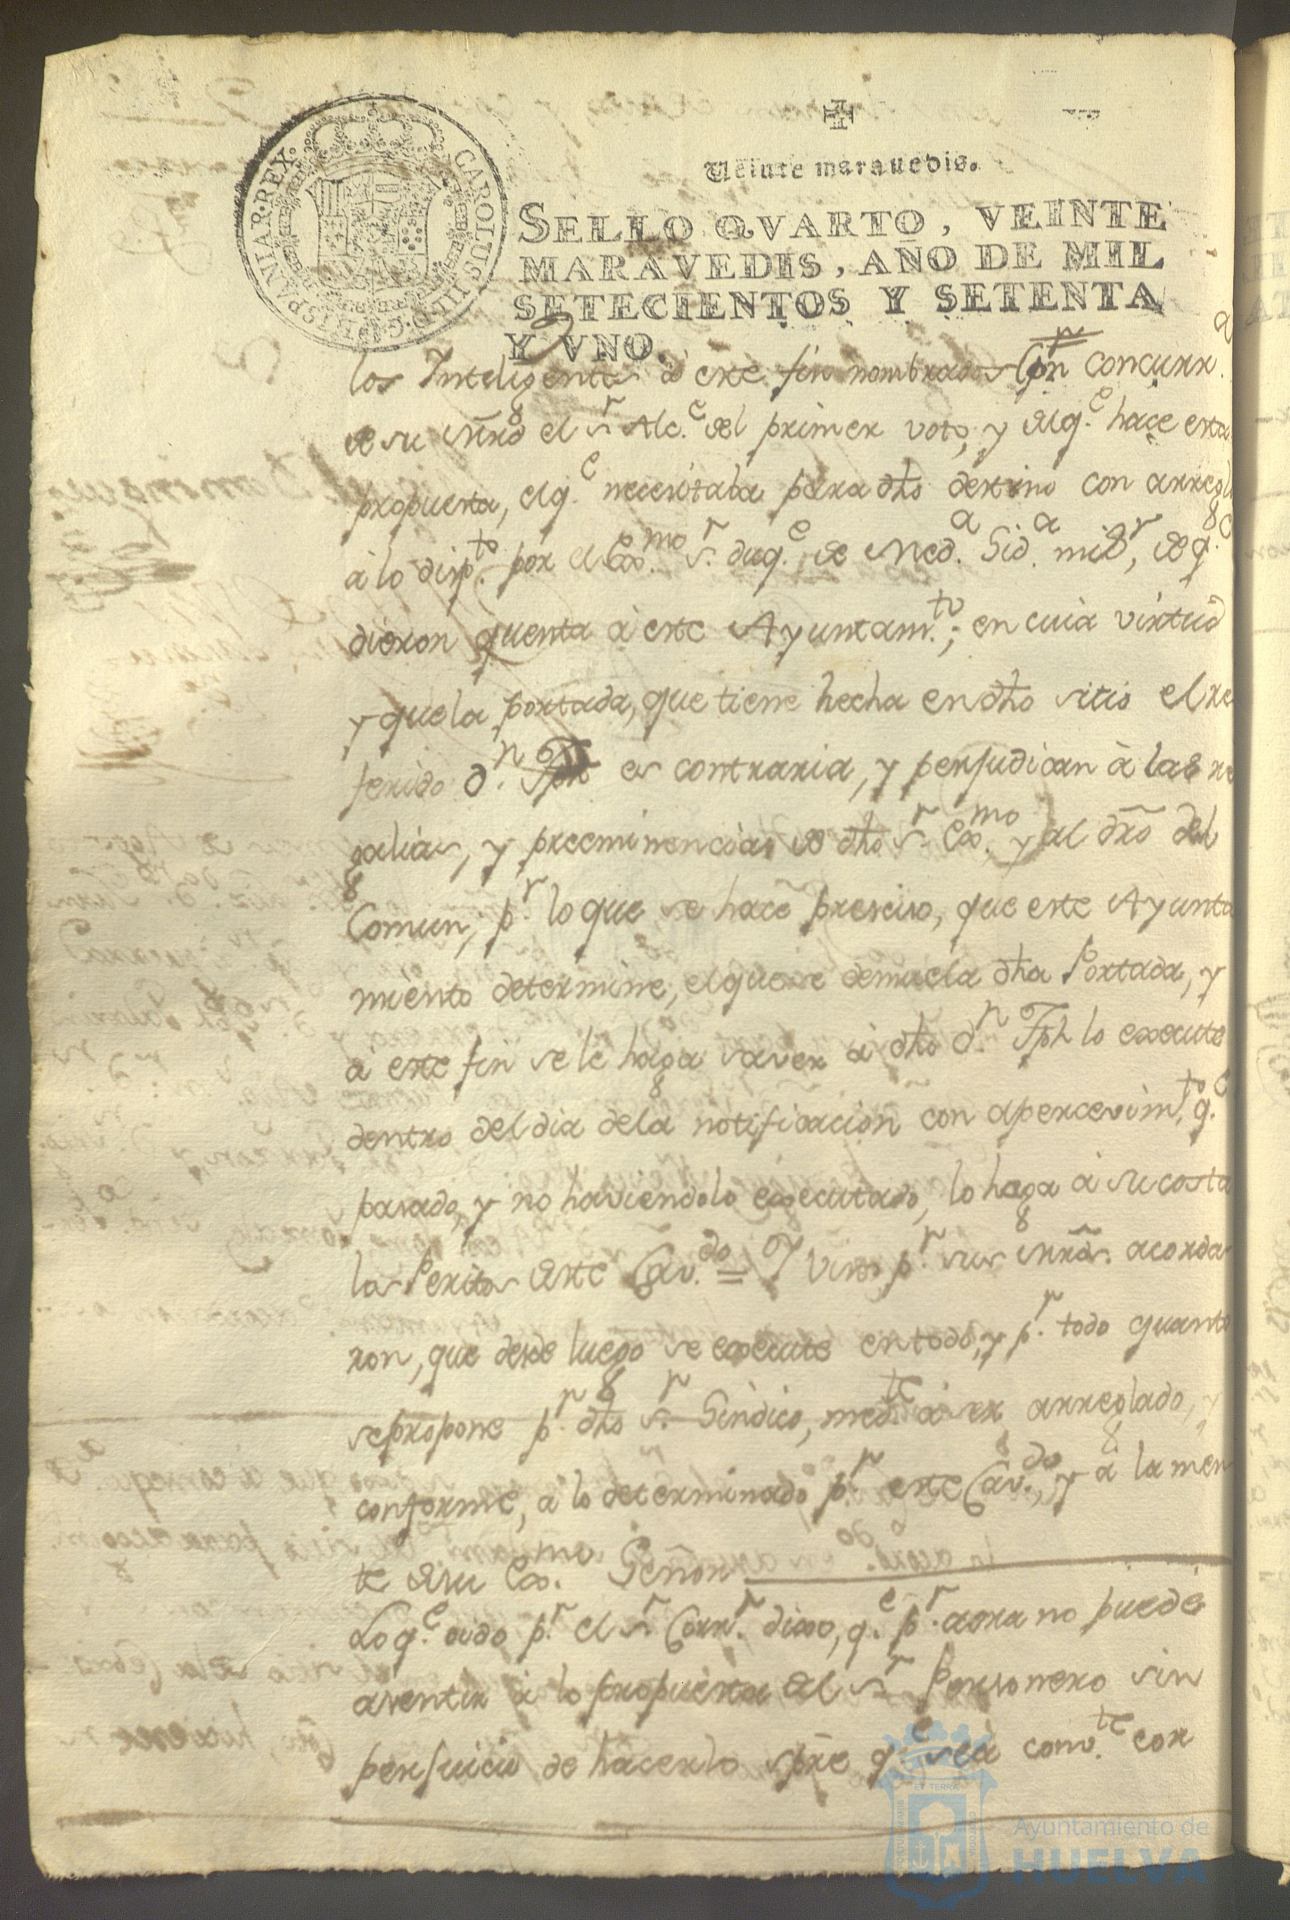 CAROLUS III D. G. HISPANIAR. REX.
Veinte maravedis.
SELLO QVARTO, VEINTE
MARAVEDIS, AÑO DE MIL
SETECIENTOS Y SETENTA
Y VNO.
los Inteligentes à este fin nombrados con concurr.ª
de su mrd el s.r Alc.e del primer voto, y el q.e hace esta
propuesta, el q.e necesitaba para dho destino con arreglo
à lo disp.to por el Exc.mo s.r duq.e de Med.a Sid.a mi s.r, de q.e
dieron quenta à este Ayuntam.to; en cuia virtud
y que la portada, que tiene hecha en dho sitio el re
ferido d.n Jph es contraria, y perjudican à las re
galias, y preeminencias de dho s.r Exc.mo y al dro del
Comun, p.r lo que se hace preciso, que este Ayunta
miento determine, el que se demuela dha Portada, y
à este fin se le haga saver à dho d.n Jph lo execute
dentro del dia de la notificacion con apercevim.to q.e
pasado, y no haviendolo executado, lo haga à su costa
los Peritos de este Cav.do = Y Visto p.r sus mrds. acorda
ron, que desde luego se execute en todo, y p.r todo quanto
se propone p.r dho s.r Sindico, med.te à ser arreglado, y
conforme, a lo determinado p.r este Cav.do, y à la men
te de su Exc.mo Señor
Lo q.e oido p.r el s.r Corr.r dixo, q.e p.r aora no puede
asentir à lo propuesto del s.r Personero sin
perjuicio de hacerlo spre q.e sea conv.te cor
Ayuntamiento de
HUELVA